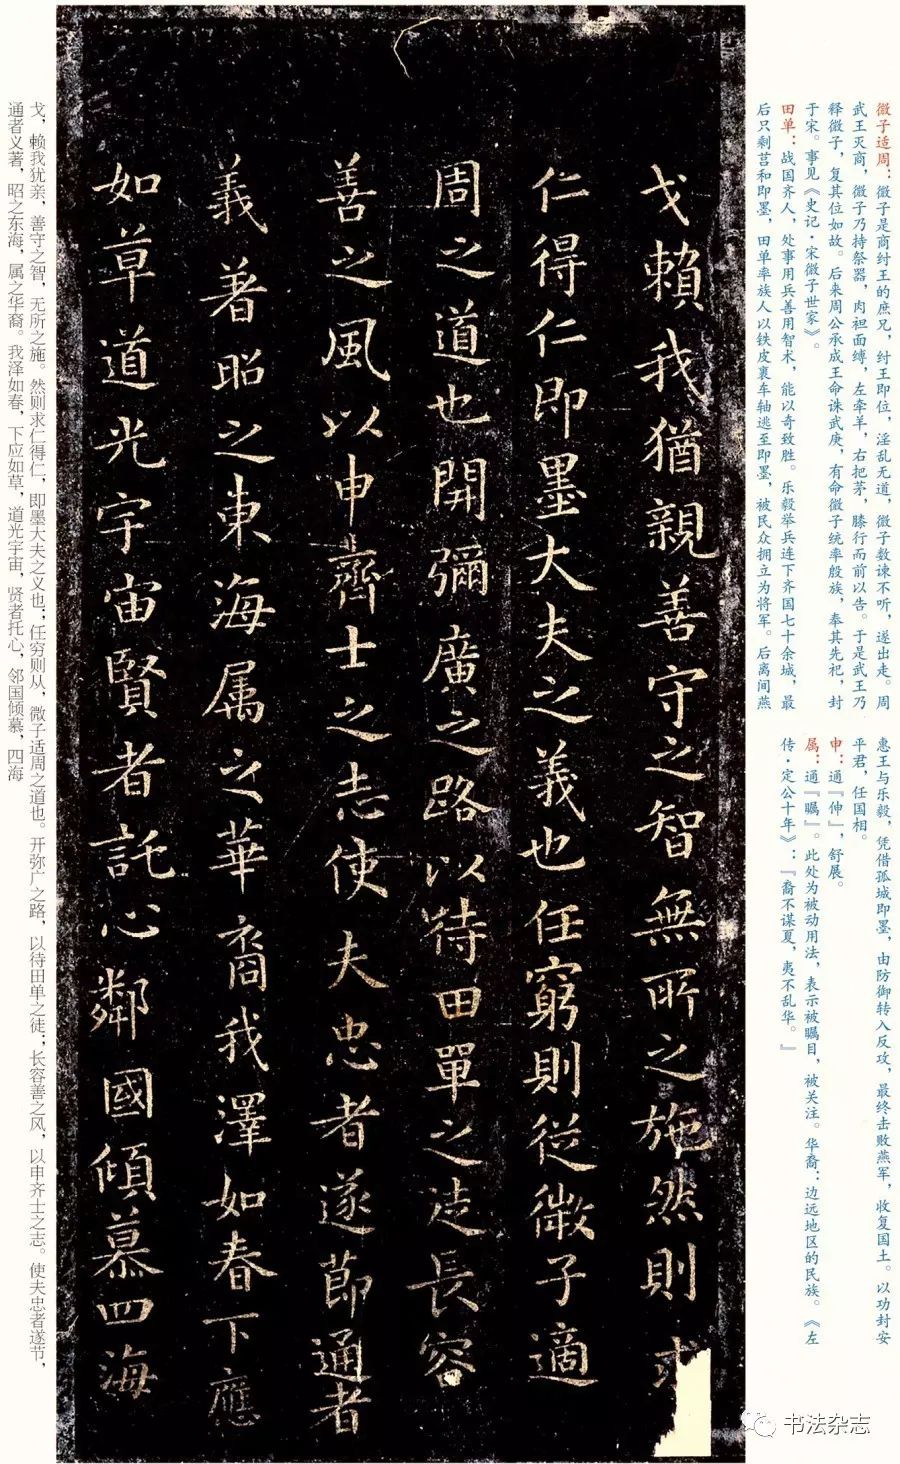 微子适周：微子是商纣王的庶兄，纣王即位，淫乱无道，微子数谏不听，遂出走。周
武王灭商，微子乃持祭器，肉袒面缚，左牵羊，右把茅，膝行而前以告。于是武王乃
释微子，复其位如故。后来周公承成王命诛武庚，有命微子统率殷族，奉其先祀，封
于宋。事见《史记·宋微子世家》。
田单：战国齐人，处事用兵善用智术，能以奇致胜。乐毅举兵连下齐国七十余城，最
后只剩莒和即墨，田单率族人以铁皮裹车轴逃至即墨，被民众拥立为将军。后离间燕
惠王与乐毅，凭借孤城即墨，由防御转入反攻，最终击败燕军，收复国土。以功封安
平君，任国相。
申：通『伸』，舒展。
属：通『瞩』。此处为被动用法，表示被瞩目，被关注。华裔：边远地区的民族。《左
传·定公十年》：『裔不谋夏，夷不乱华。』
戈賴我猶親善守之智無所之施然則求
仁得仁即墨大夫之義也任窮則從微子適
周之道也開彌廣之路以待田單之徒長容
善之風以申齊士之志使夫忠者遂節通者
義著昭之東海属之華裔我澤如春下應
如草道光宇宙賢者託心鄰國傾慕四海
戈，赖我犹亲，善守之智，无所之施。然则求仁得仁，即墨大夫之义也；任穷则从，微子适周之道也。开弥广之路，以待田单之徒；长容善之风，以申齐士之志。使夫忠者遂节，
通者义著，昭之东海，属之华裔。我泽如春，下应如草，道光宇宙，贤者托心，邻国倾慕，四海
书法杂志